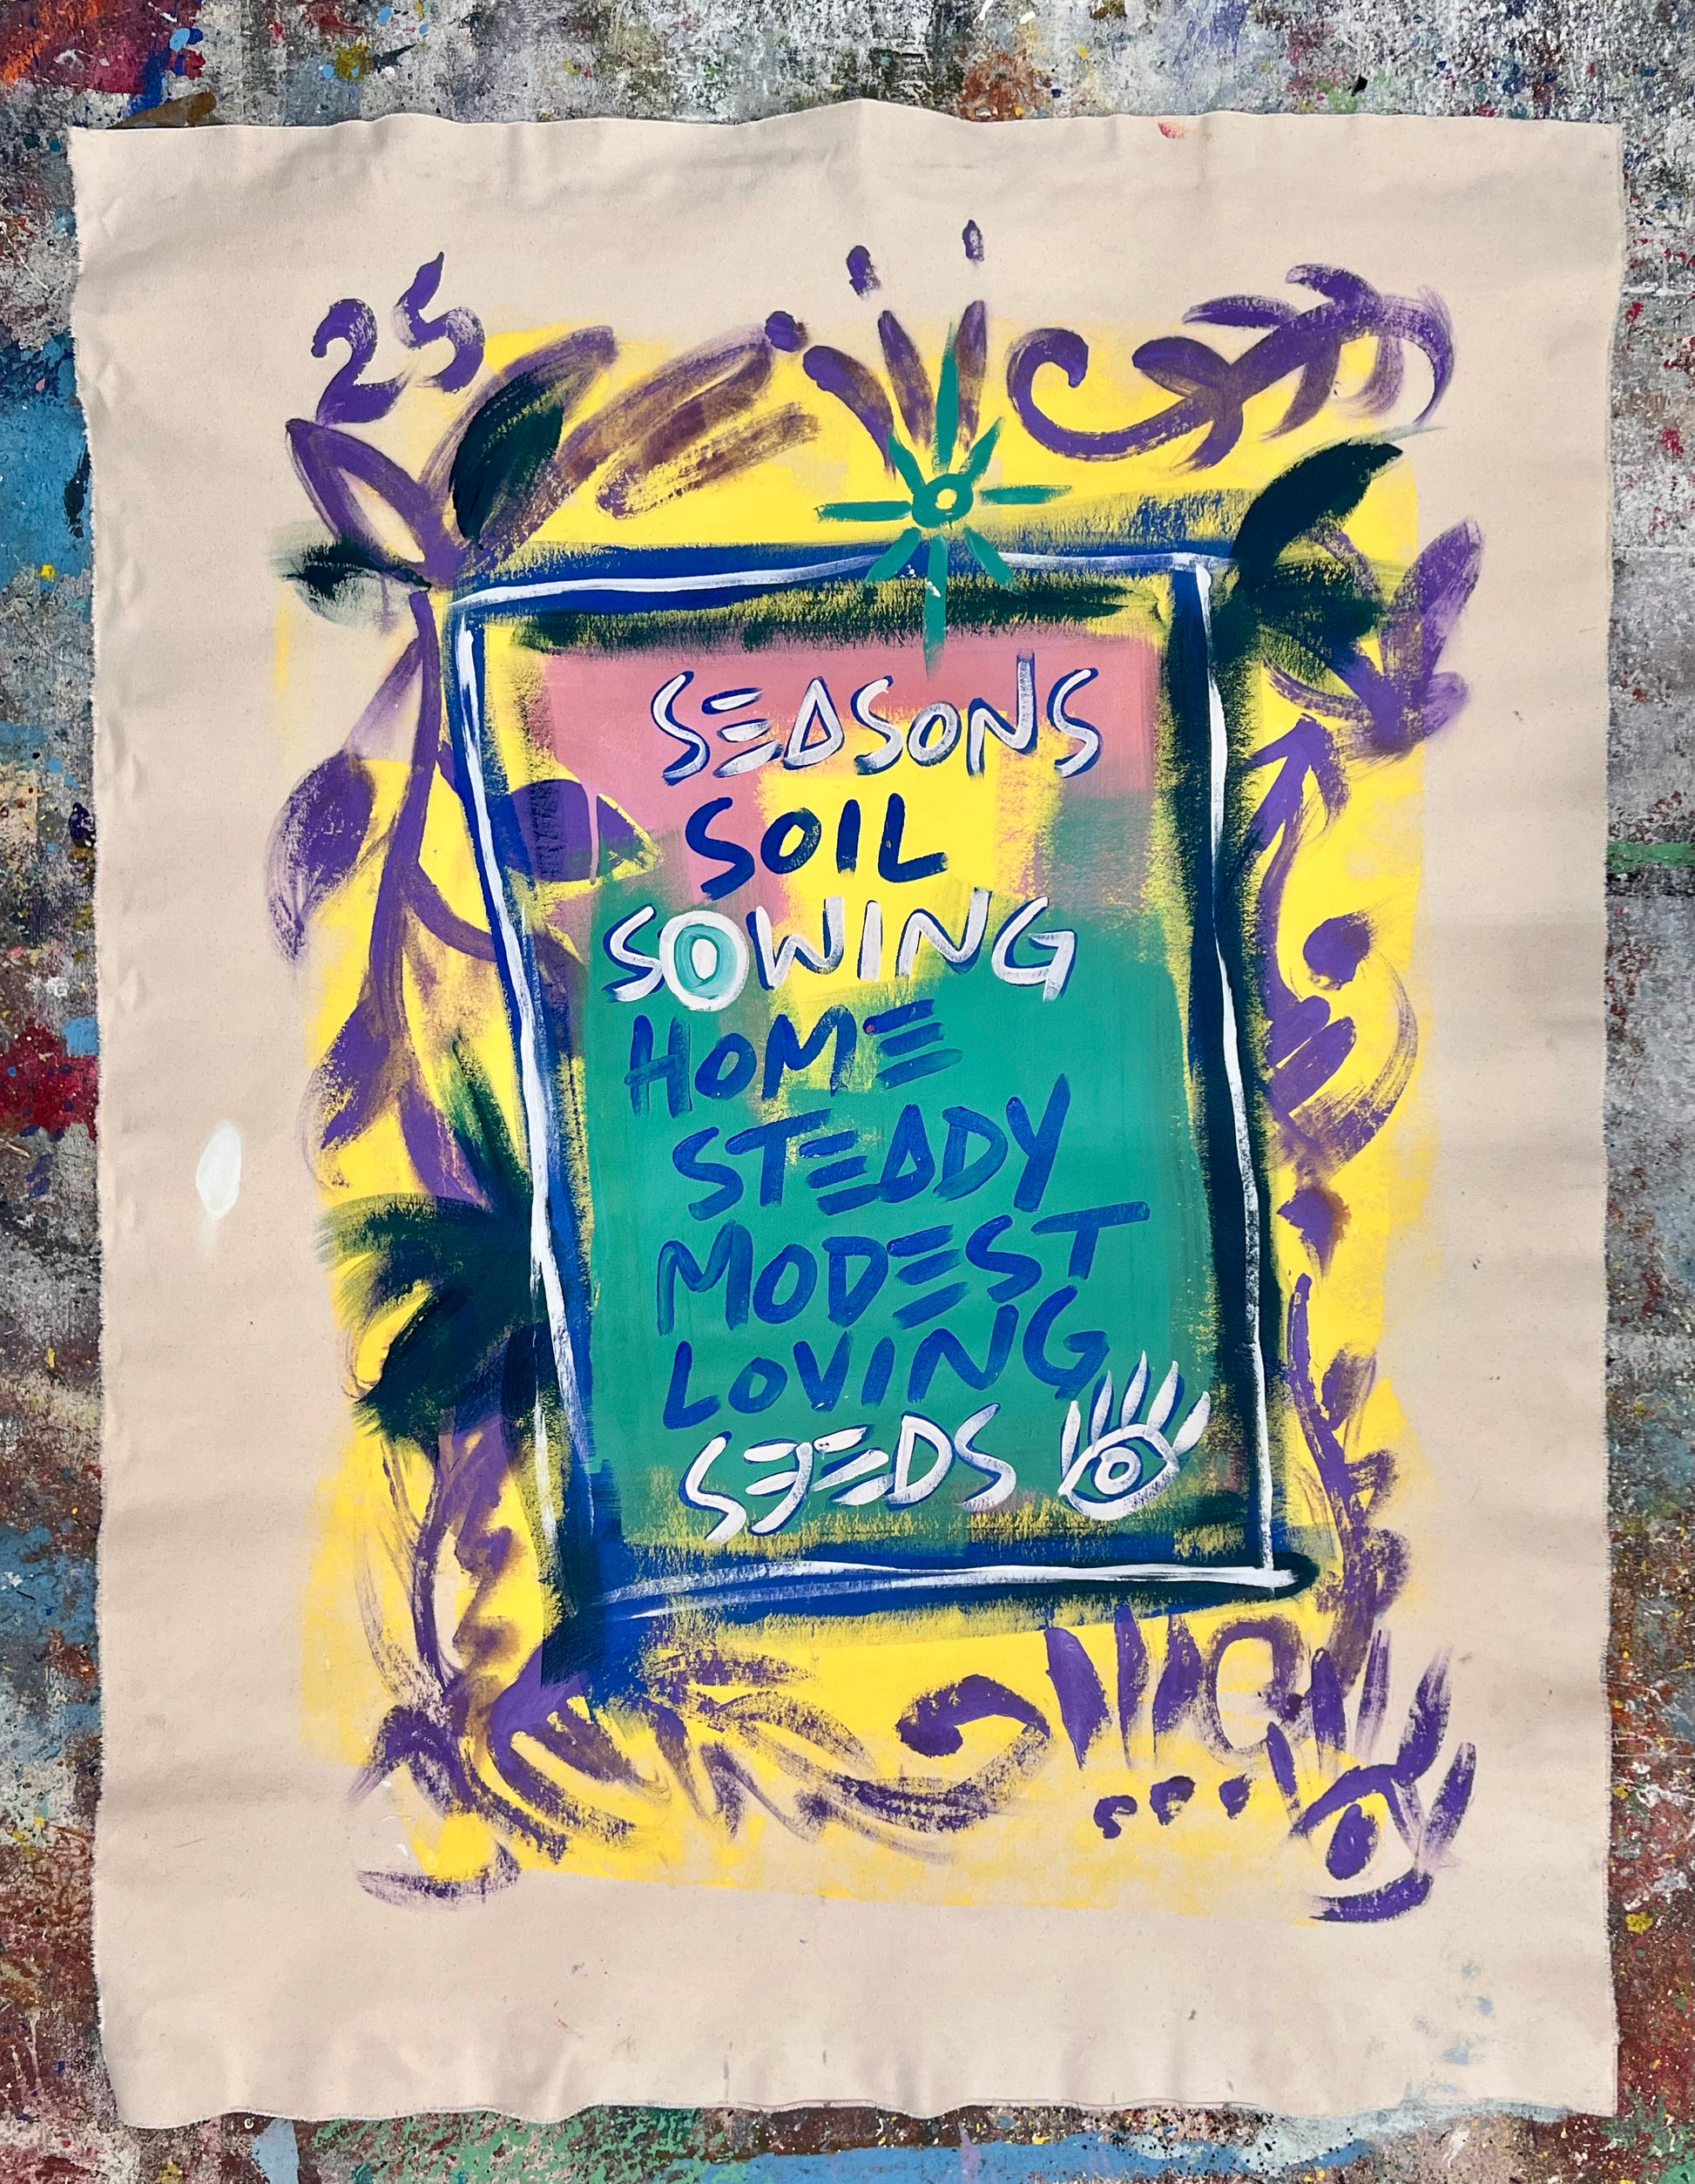 25
SEASONS
SOIL
SOWING
HOME
STEADY
MODEST
LOVING
SEEDS